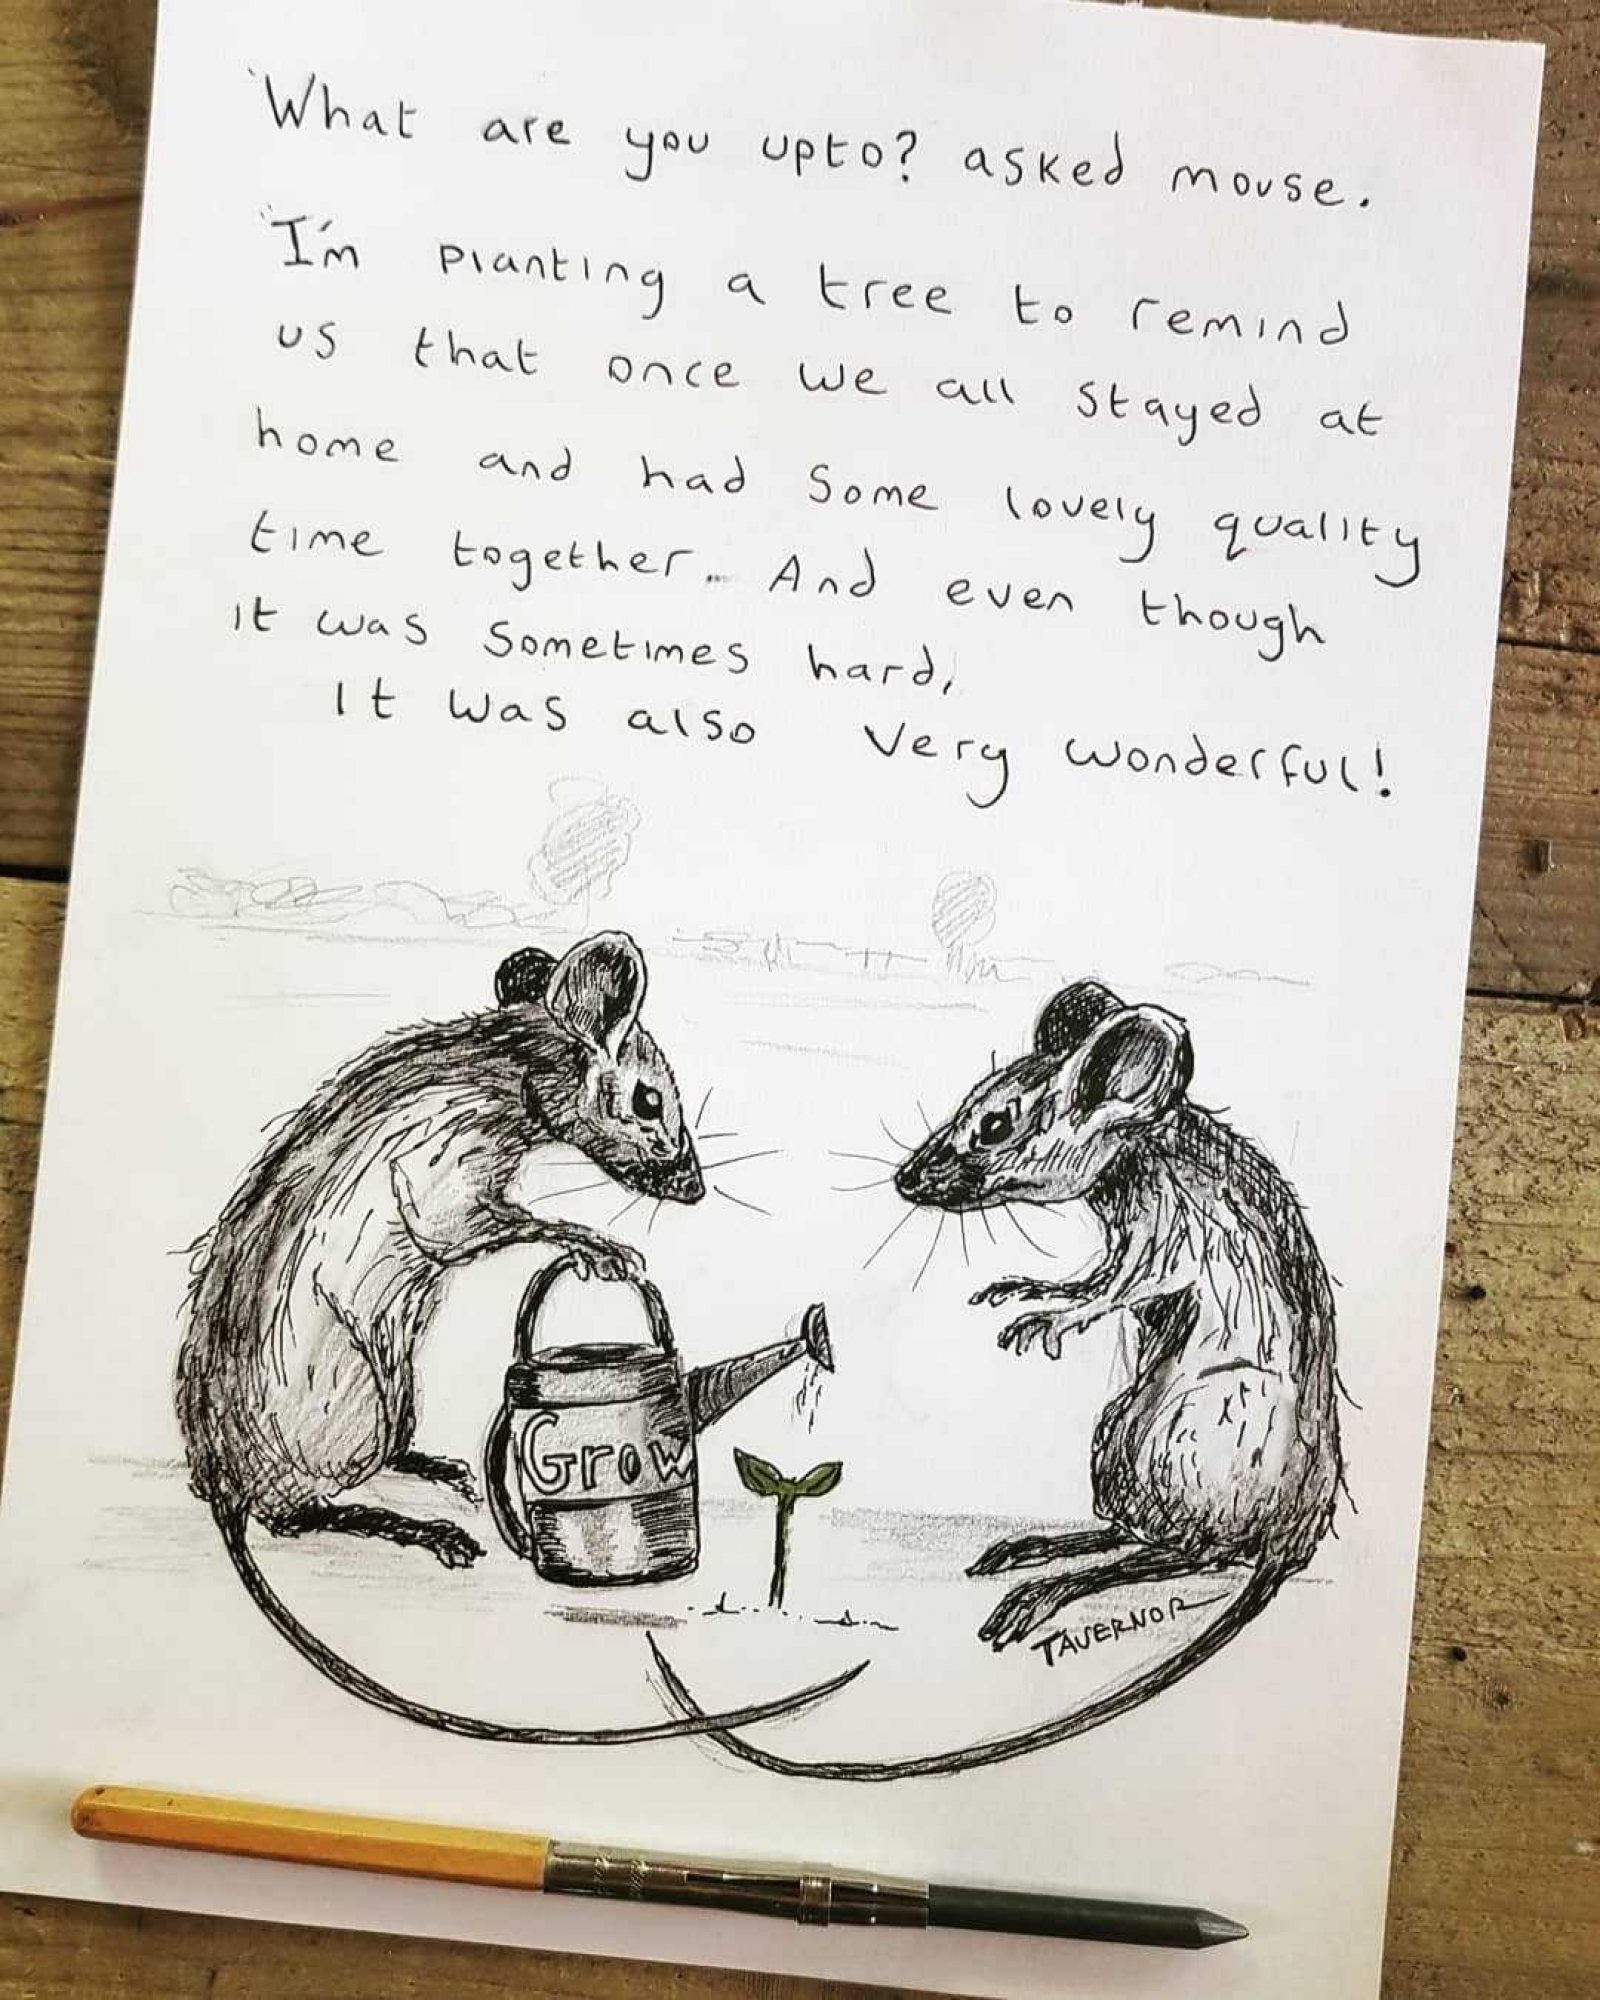 'What are you upto? asked mouse.
'I'm planting a tree to remind
us that once we all stayed at
home and had some lovely quality
time together. And even though
it was sometimes hard,
it was also very wonderful!
Grow
TAVERNOR